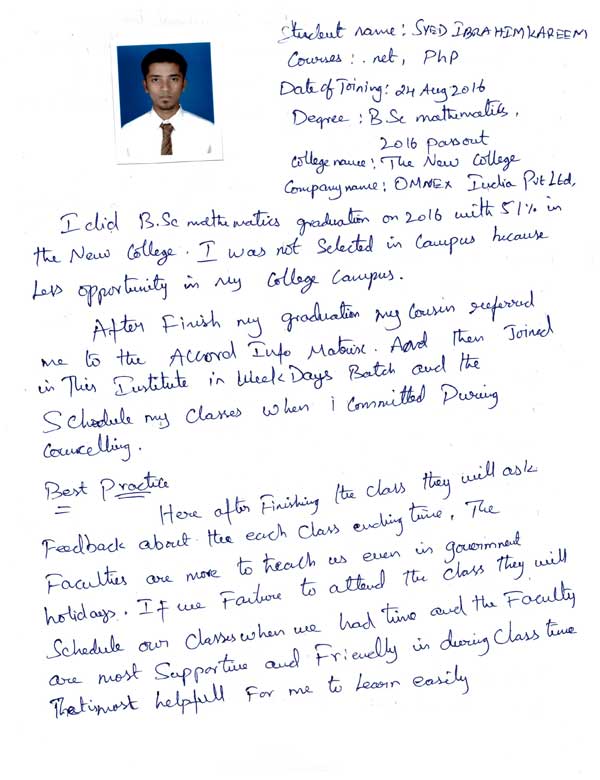 Student name: SYED IBRAHIM KAREEM
Courses: .net, PhP
Date of Joining: 24 Aug 2016
Degree: B.Sc mathematics,
2016 passout
College name: The New College
Company name: OMNEX India Pvt Ltd,
I did B.Sc mathematics graduation on 2016 with 51% in
the New College. I was not Selected in Campus because
Less opportunity in my College Campus.
After Finish my graduation my Cousin referred
me to the Accord Info Matrix. And then Joined
in This Institute in Week Days Batch and the
Schedule my classes when i committed During
Councelling.
Best Practice
Here after Finishing the class they will ask
Feedback about the each Class ending time. The
Faculties are more to teach us even in government
holidays. If we Failure to attend the class they will
Schedule our Classes when we had time and the Faculty
are most Supportive and Friendly in during Class time
That is most helpfull For me to Learn easily